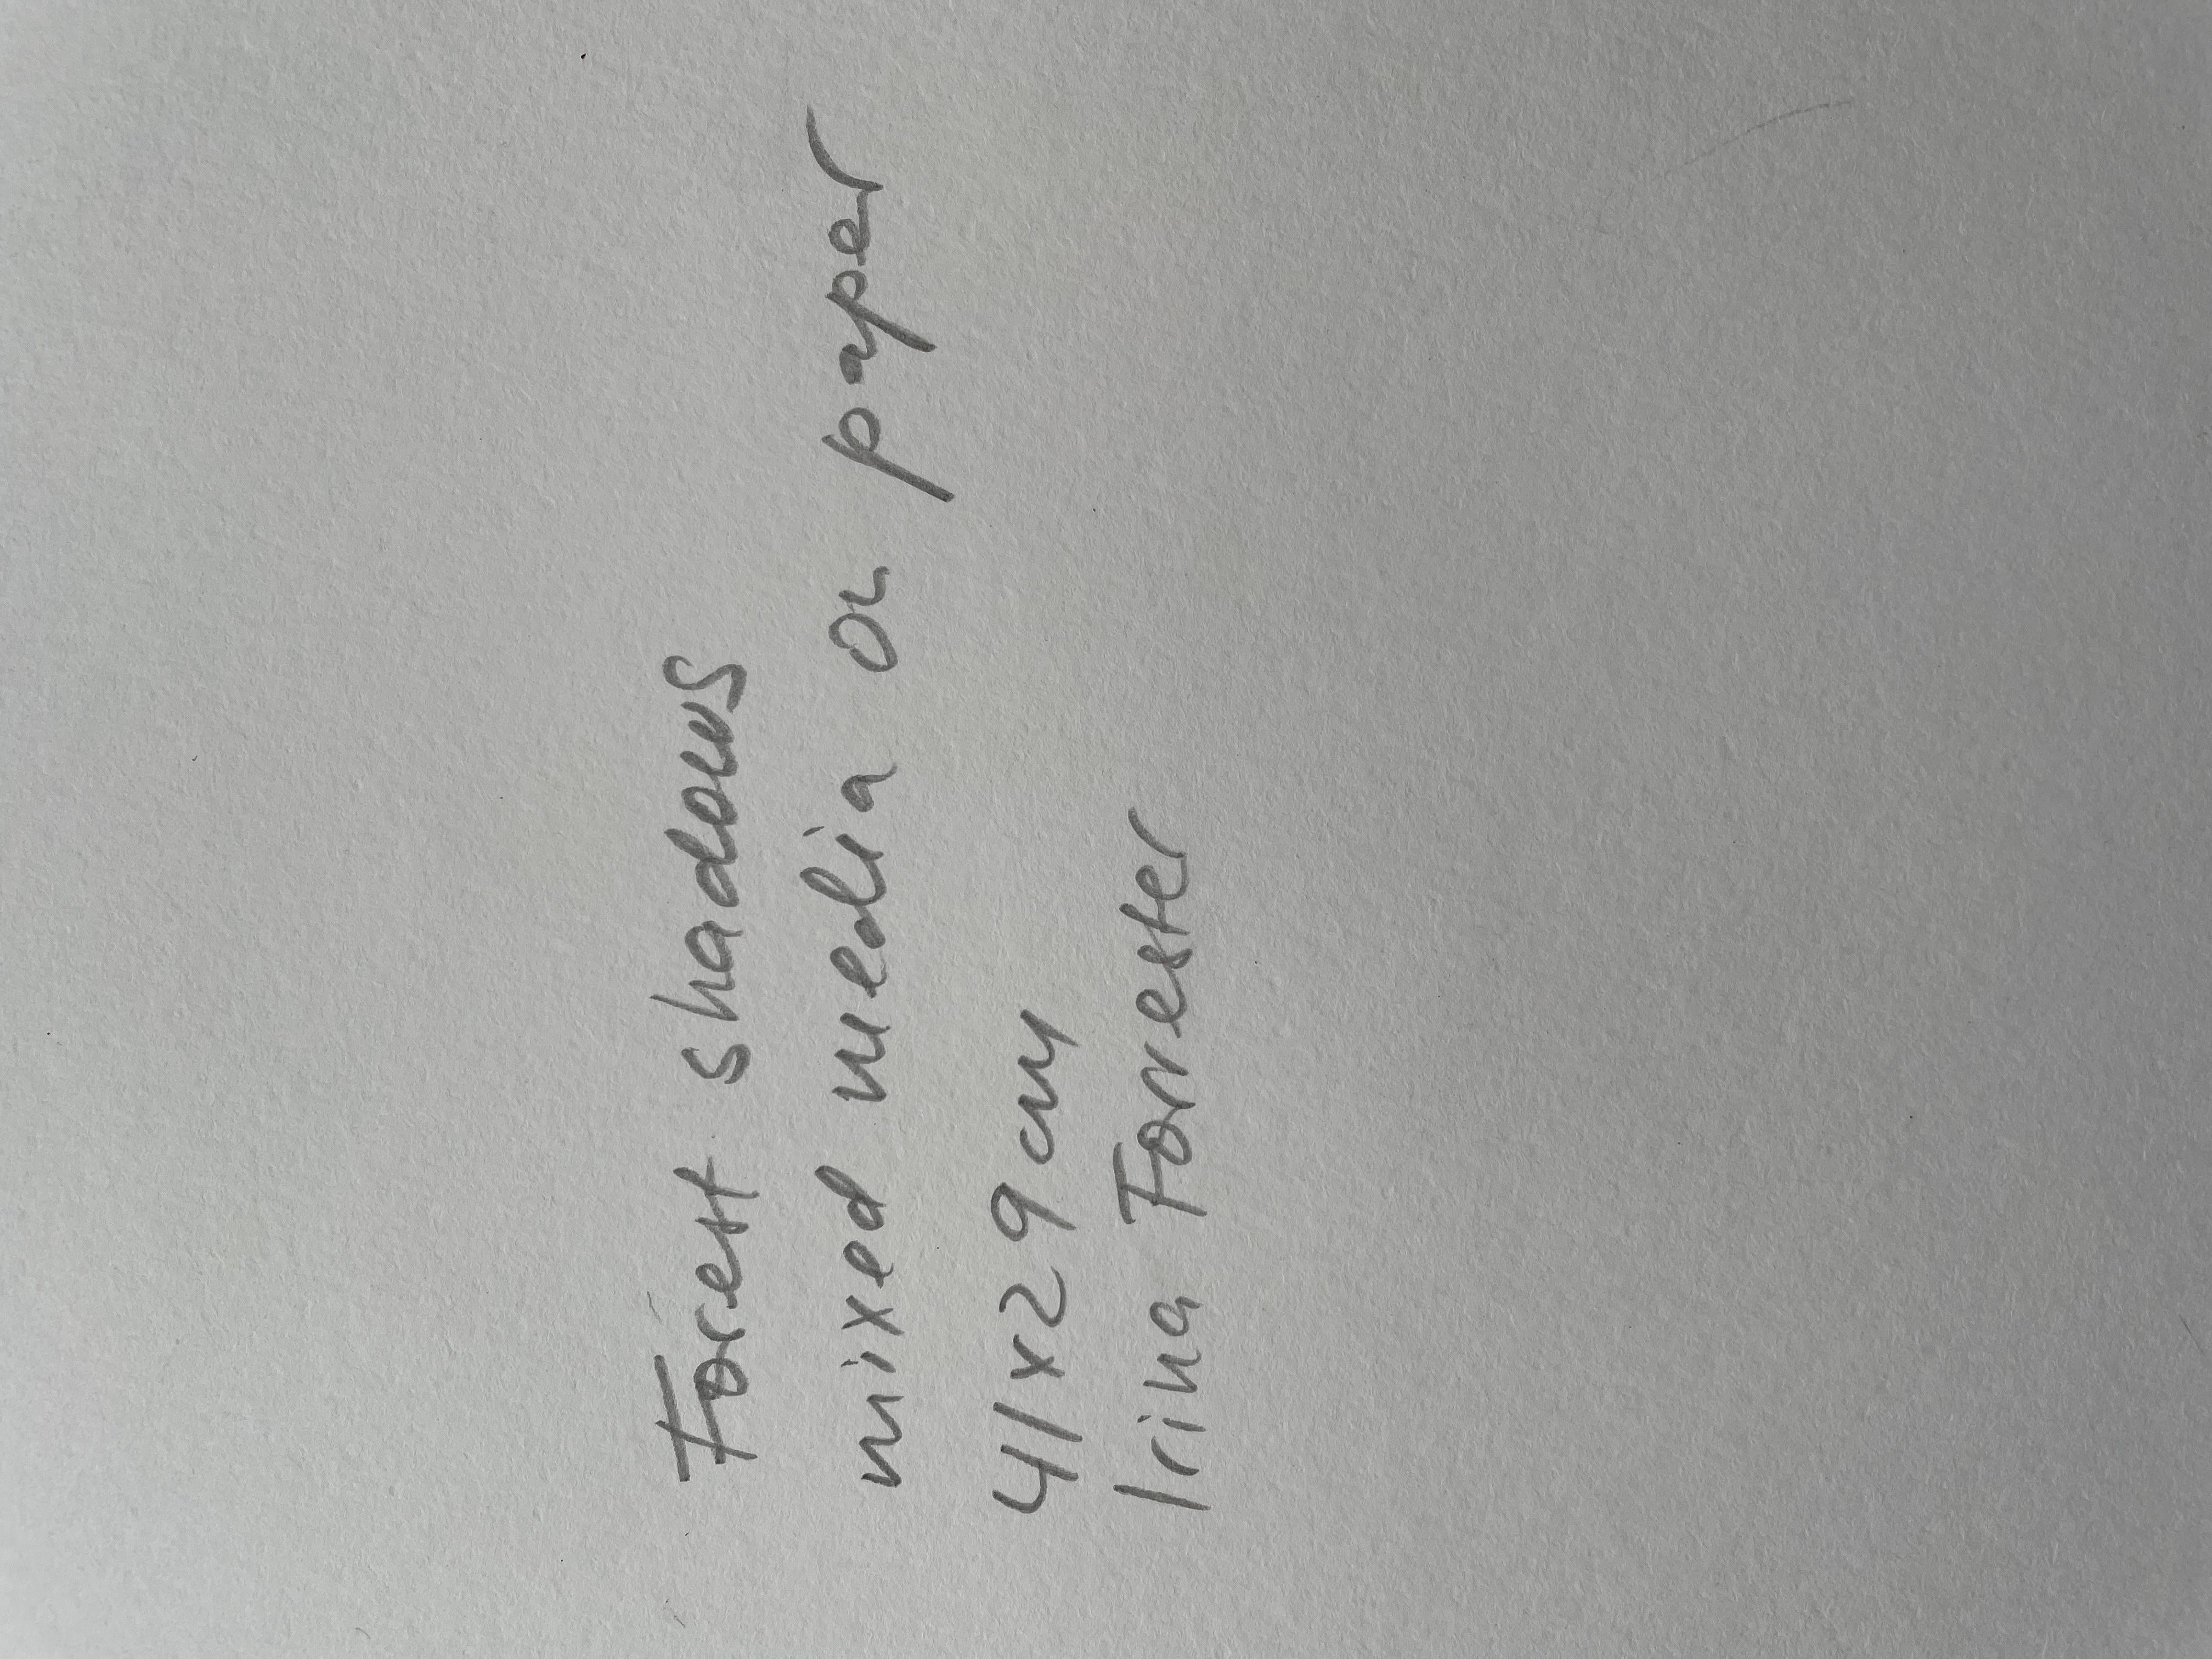 Forest shadows
mixed media on paper
41x29 cm
Irina Forrester